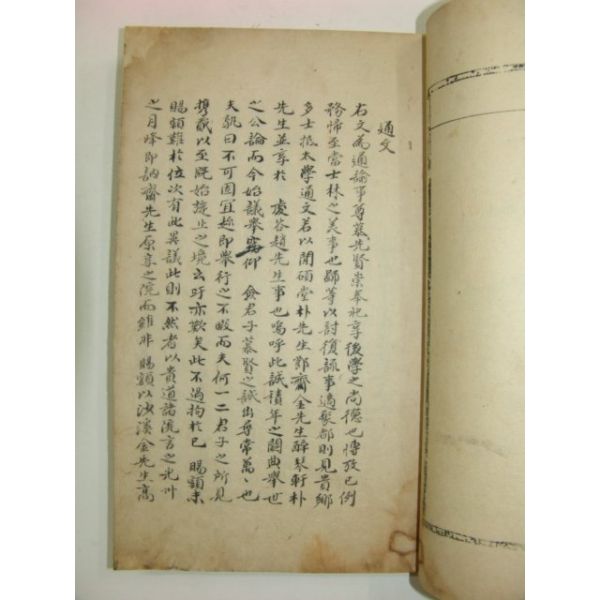 通文
右文爲通諭事尊慕先賢崇奉祀享後學之尚德也博攷已例
務歸至當士林之美事也鄙等以討復疏事適聚都則見貴鄉
多士抵太學通文若以閒碩堂朴先生鄭齋金先生醉琴軒朴
先生並享於 處谷趙先生事也嗚呼此誠積年之闕典舉世
之公論而今始議舉竊仰 僉君子慕賢之誠出尋常萬〻也
夫孰曰不可因宜趁即舉行之不暇而夫何一二君子之所見
携貳以至旣始旋止之境云吁亦歎矣此不過拘於已 賜額未
賜額難於位次有此異議此則不然者以貴道諸流言之光州
之月峰即訥齋先生原享之院而雖非 賜額以沙溪金先生高